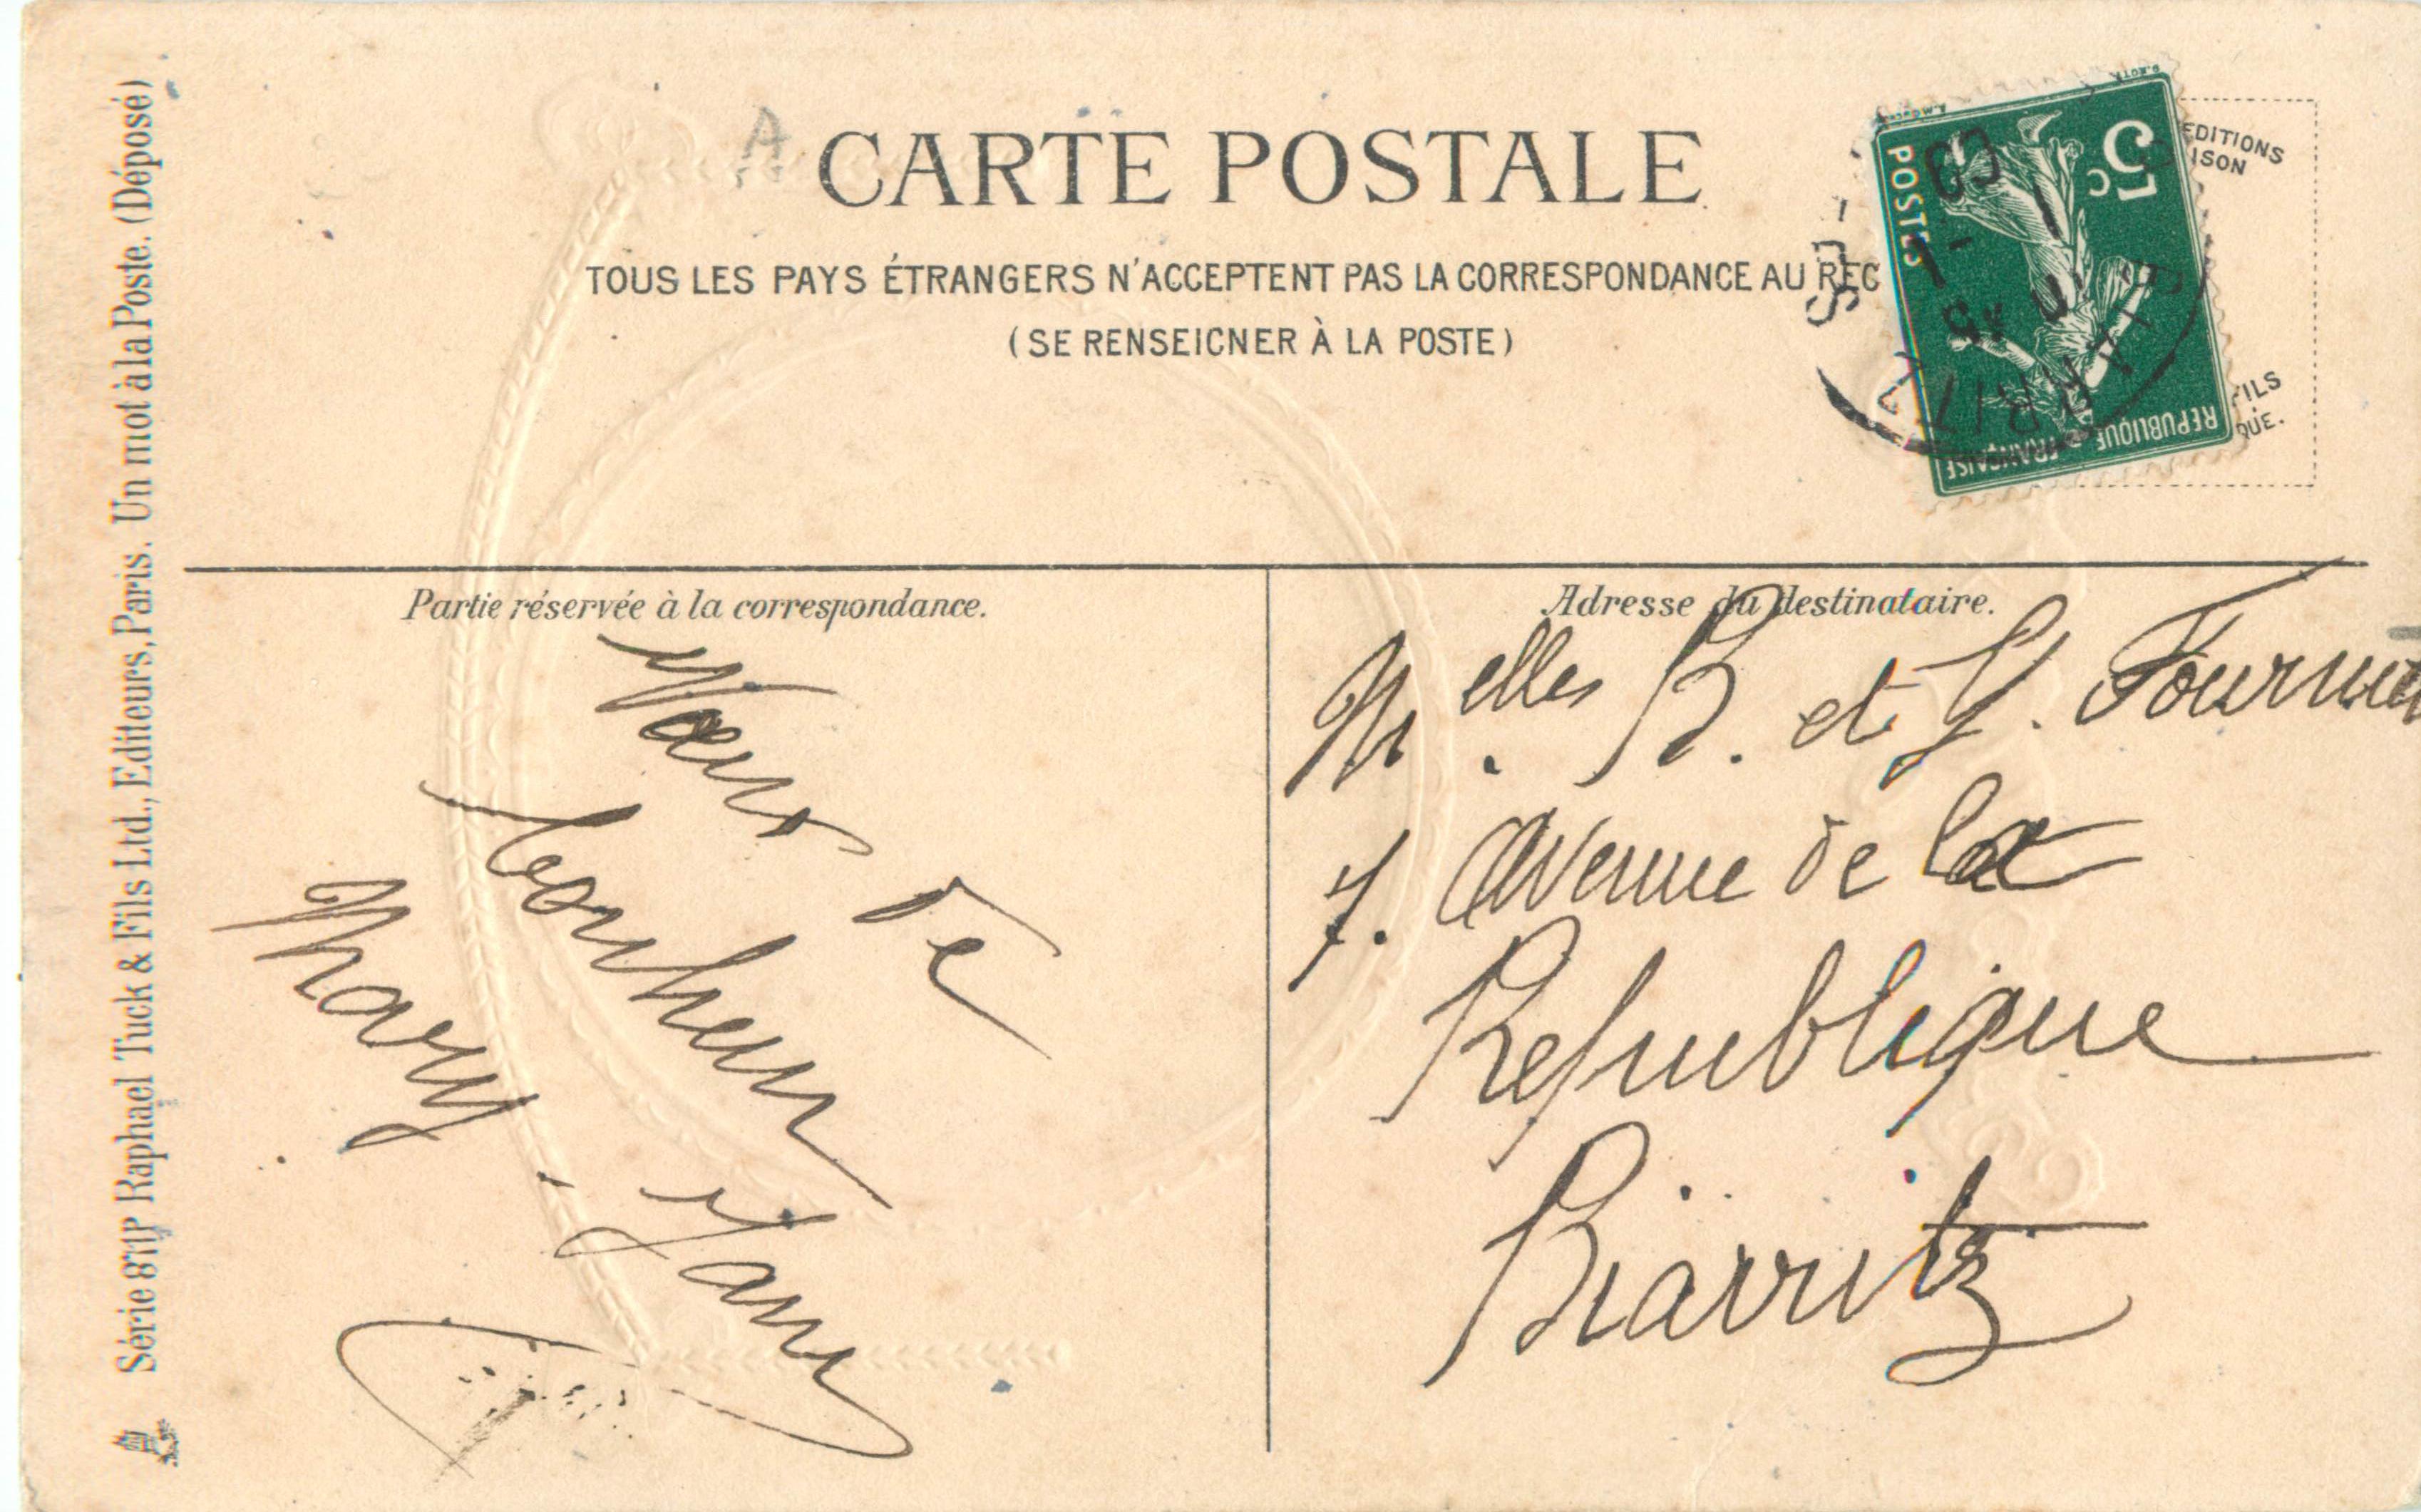 CARTE POSTALE
TOUS LES PAYS ÉTRANGERS N'ACCEPTENT PAS LA CORRESPONDANCE AU REC
(SE RENSEIGNER À LA POSTE)
EDITIONS
ISON
FILS
QUE.
5c
POSTES
REPUBLIQUE FRANÇAISE
BIARRITZ
09
Partie réservée à la correspondance.
Vœux de
bonheur
Mary.
Adresse du destinataire.
Melles B. et Y. Fournier
7. Avenue de la
Republique
Biarritz
Série 871P Raphael Tuck & Fils Ltd., Editeurs, Paris. Un mot à la Poste. (Déposé)